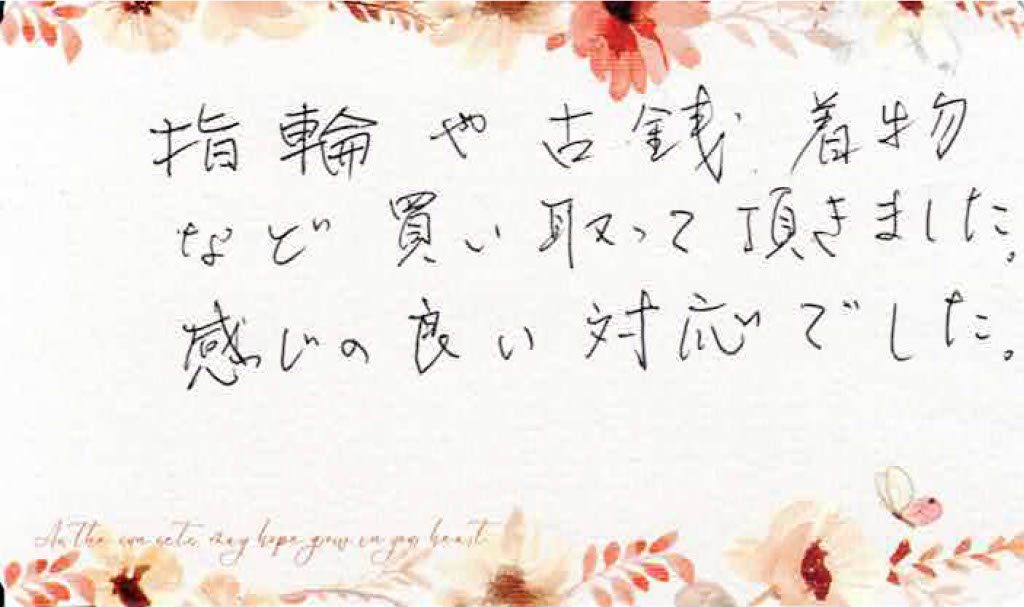 指輪や古銭、着物
など買い取って頂きました。
感じの良い対応でした。
As the sun sets, may hope grow in your heart.